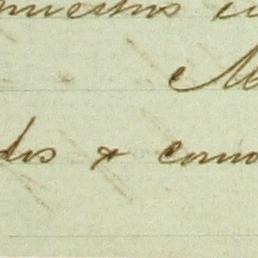 nuestros
M
dos & como